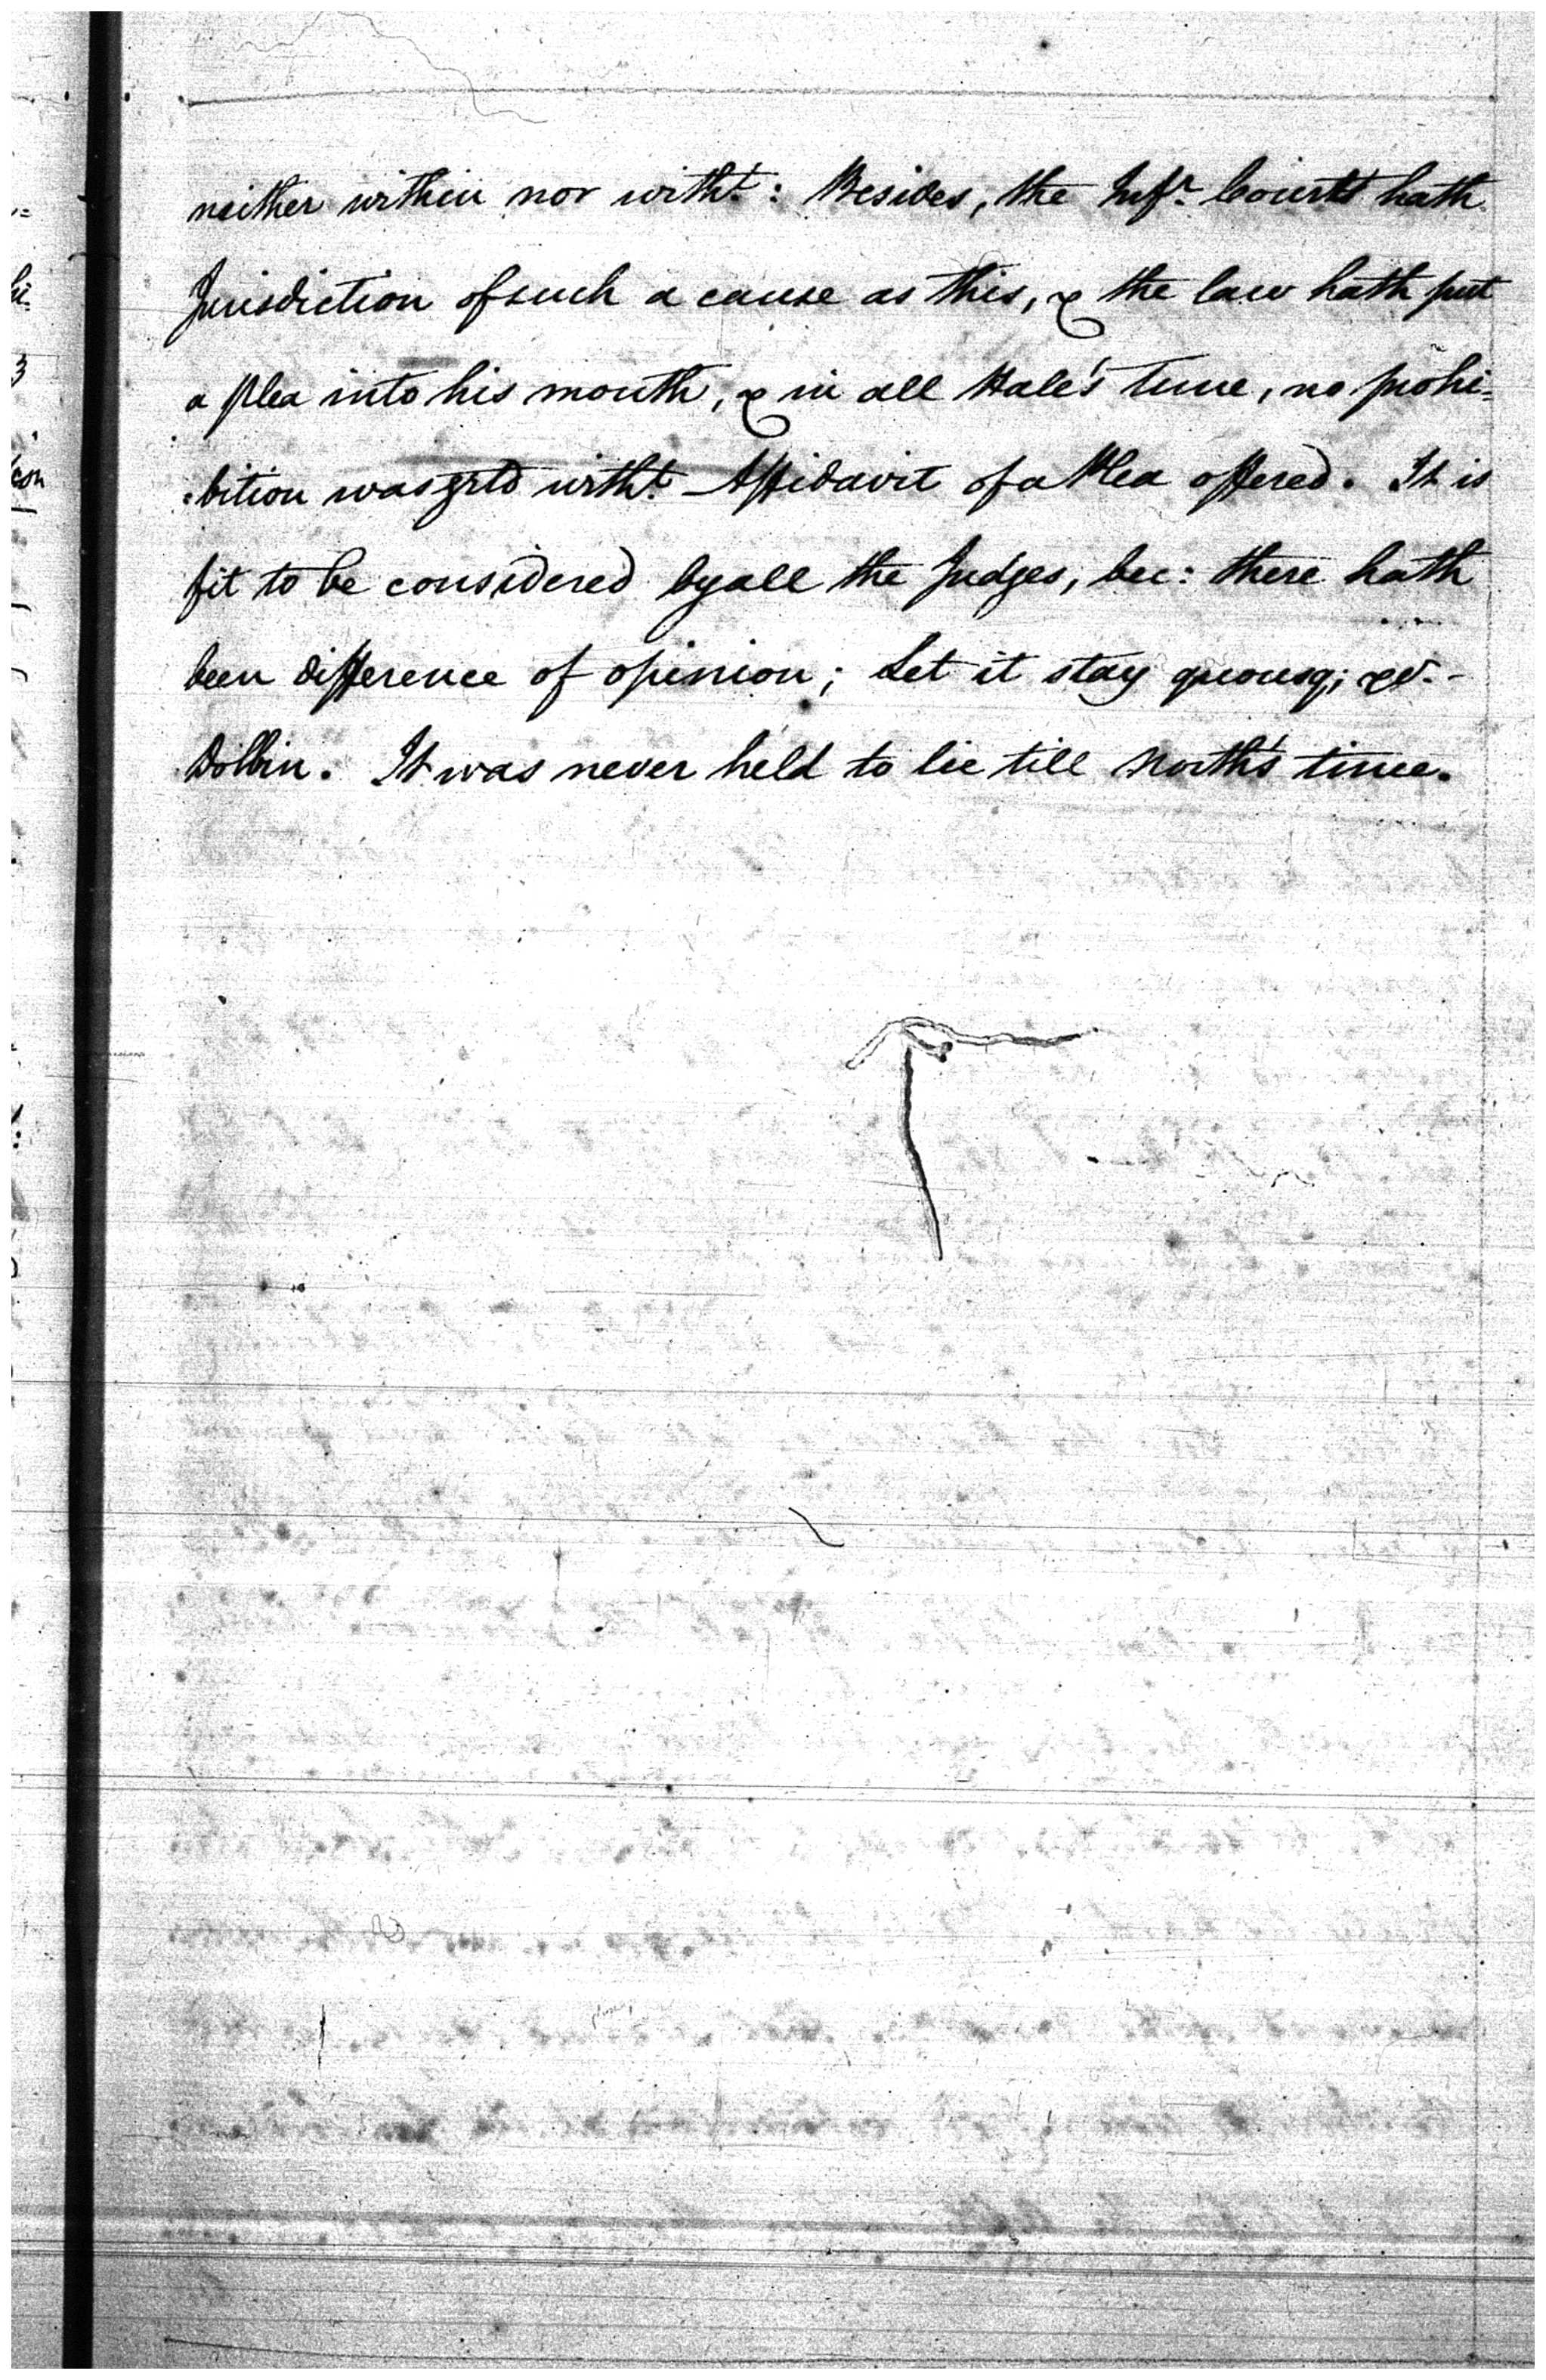 neither within nor witht: Besides, the Infr. Court hath
Jurisdiction of such a cause as this, & the law hath put
a plea into his mouth, & in all Hale's time, no prohi=
=bition was grtd witht. Affidavit of a Plea offered. It is
fit to be considered by all the Judges, bec: there hath
been difference of opinion; Let it stay quousq; &c. -
Dolbin. It was never held to lie till North's time.